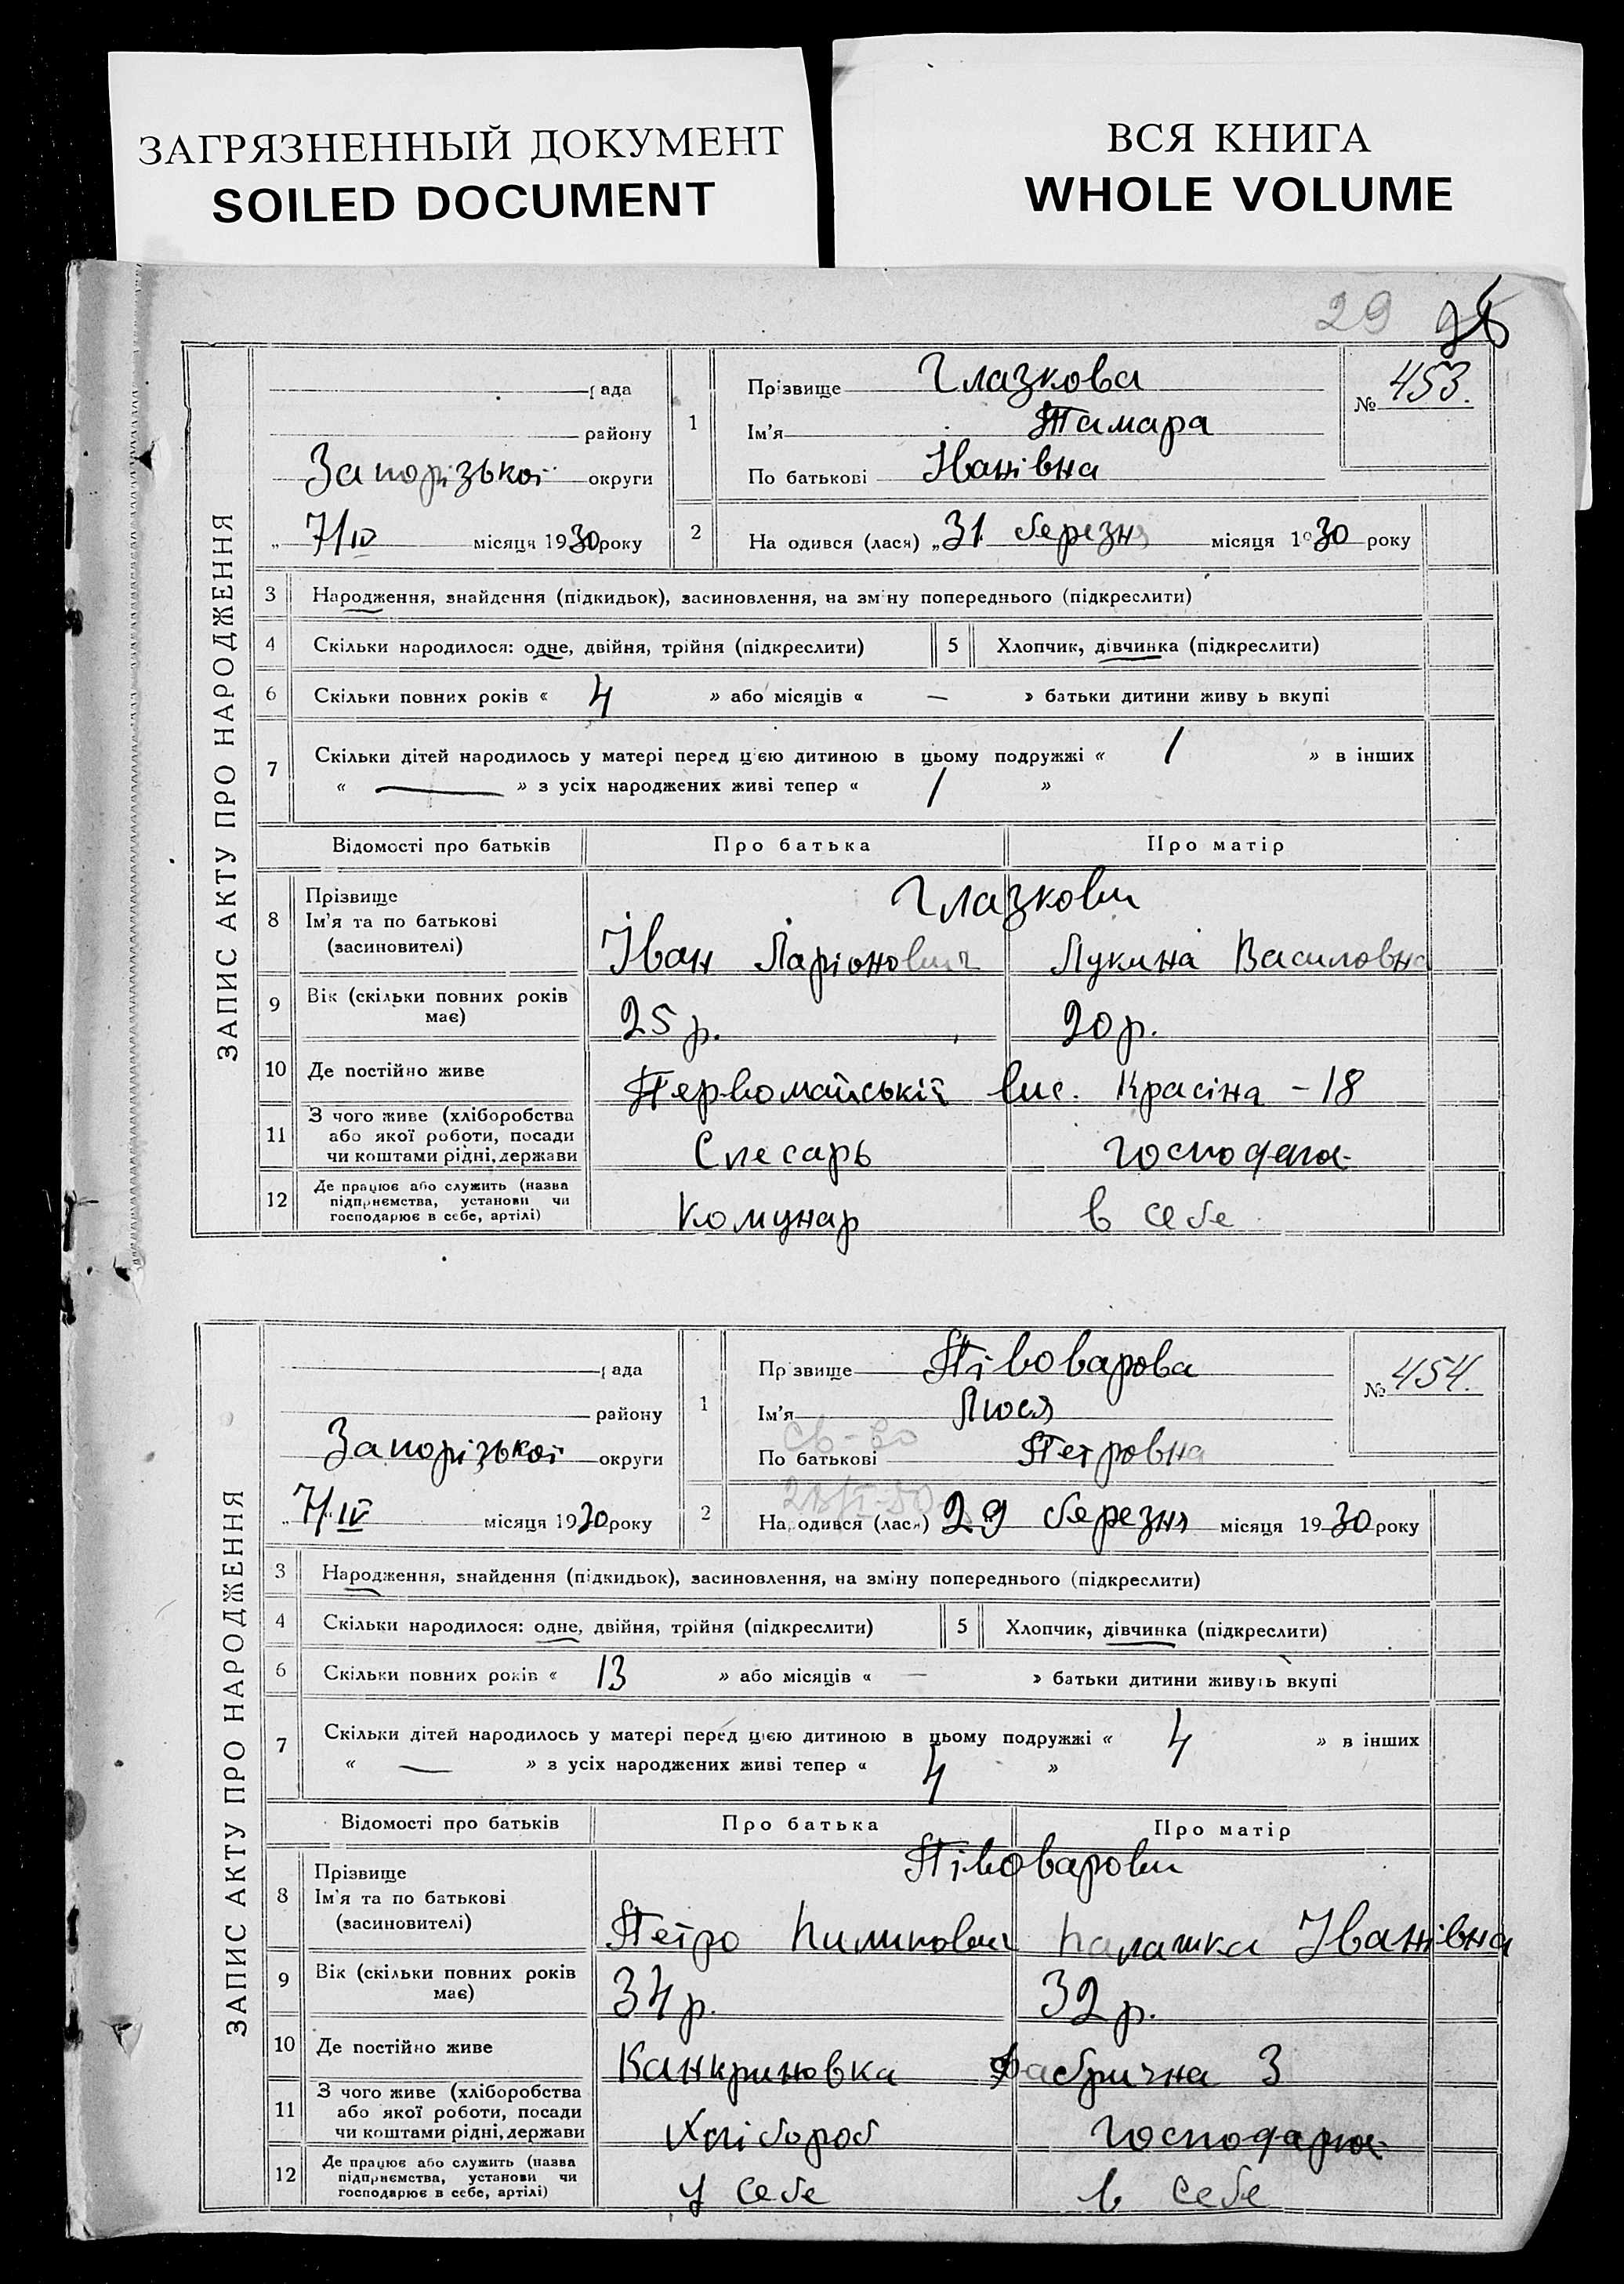 ЗАГРЯЗНЕННЫЙ ДОКУМЕНТ
SOILED DOCUMENT
ВСЯ КНИГА
WHOLE VOLUME
29
ЗАПИС АКТУ ПРО НАРОДЖЕННЯ
рада
району
Запорізької округи
„ 7/IV місяця 1930 року
1 Прізвище Глазкова
Ім'я Тамара
По батькові Іванівна
№ 453.
2 На одився (лася) „31 березня місяця 1930 року
3 Народження, знайдення (підкидьок), засиновлення, на зміну попереднього (підкреслити)
4 Скільки народилося: одне, двійня, трійня (підкреслити) 5 Хлопчик, дівчинка (підкреслити)
6 Скільки повних років « 4 » або місяців « — » батьки дитини живу ь вкупі
7 Скільки дітей народилось у матері перед цією дитиною в цьому подружжі « 1 » в інших
« — » з усіх народжених живі тепер « 1 »
Відомості про батьків Про батька Про матір
8 Прізвище
Ім'я та по батькові
(засиновителі)
Глазкови
Іван Ларіонович Лукина Василовна
9 Вік (скільки повних років має) 25 р. 20 р.
10 Де постійно живе Первомайській вис. Красіна - 18
11 З чого живе (хліборобства
або якої роботи, посади
чи коштами рідні, держави
Слесарь
12 Де працює або служить (назва
підприємства, установи чи
господарює в себе, артілі)
Комунар в себе
ЗАПИС АКТУ ПРО НАРОДЖЕННЯ
рада
району
Запорізької округи
„ 7/IV місяця 1930 року
1 Пр звище Півоварова
Ім'я Люся
По батькові Петровна
№ 454.
св-во
2 На одився (лася) 29 березня місяця 1930 року
3 Народження, знайдення (підкидьок), засиновлення, на зміну попереднього (підкреслити)
4 Скільки народилося: одне, двійня, трійня (підкреслити) 5 Хлопчик, дівчинка (підкреслити)
6 Скільки повних років « 13 » або місяців « — » батьки дитини живуть вкупі
7 Скільки дітей народилось у матері перед цією дитиною в цьому подружжі « 4 » в інших
« — » з усіх народжених живі тепер « 4 »
Відомості про батьків Про батька Про матір
8 Прізвище
Ім'я та по батькові
(засиновителі)
Півоварови
Петро Пилипович Палашка Іванівна
9 Вік (скільки повних років має) 34 р. 32 р.
10 Де постійно живе Канкриновка Фабрична 3
11 З чого живе (хліборобства
або якої роботи, посади
чи коштами рідні, держави
Хлібороб
12 Де працює або служить (назва
підприємства, установи чи
господарює в себе, артілі)
у себе в себе